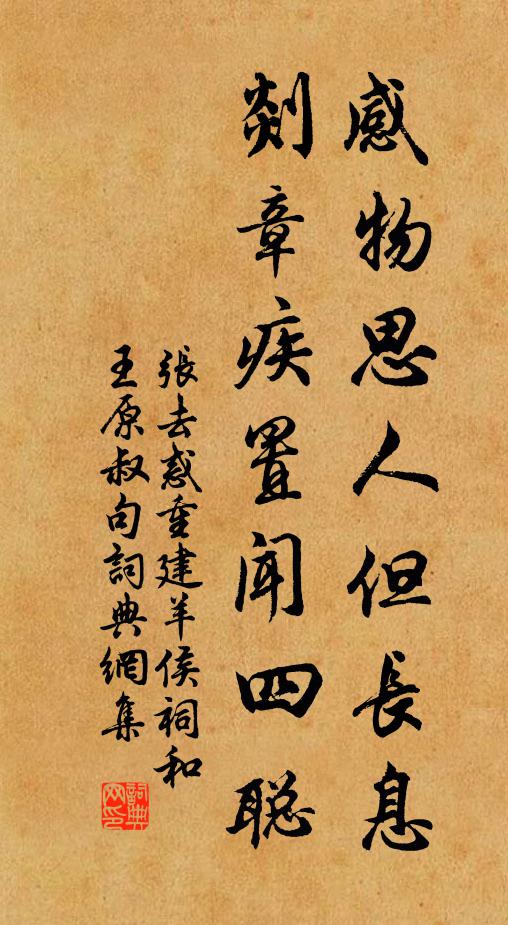 感物思人但長息
剡章疾置聞四聪
張去惑重建羊侯祠和
王原叔句詞典網集
詞典
网印